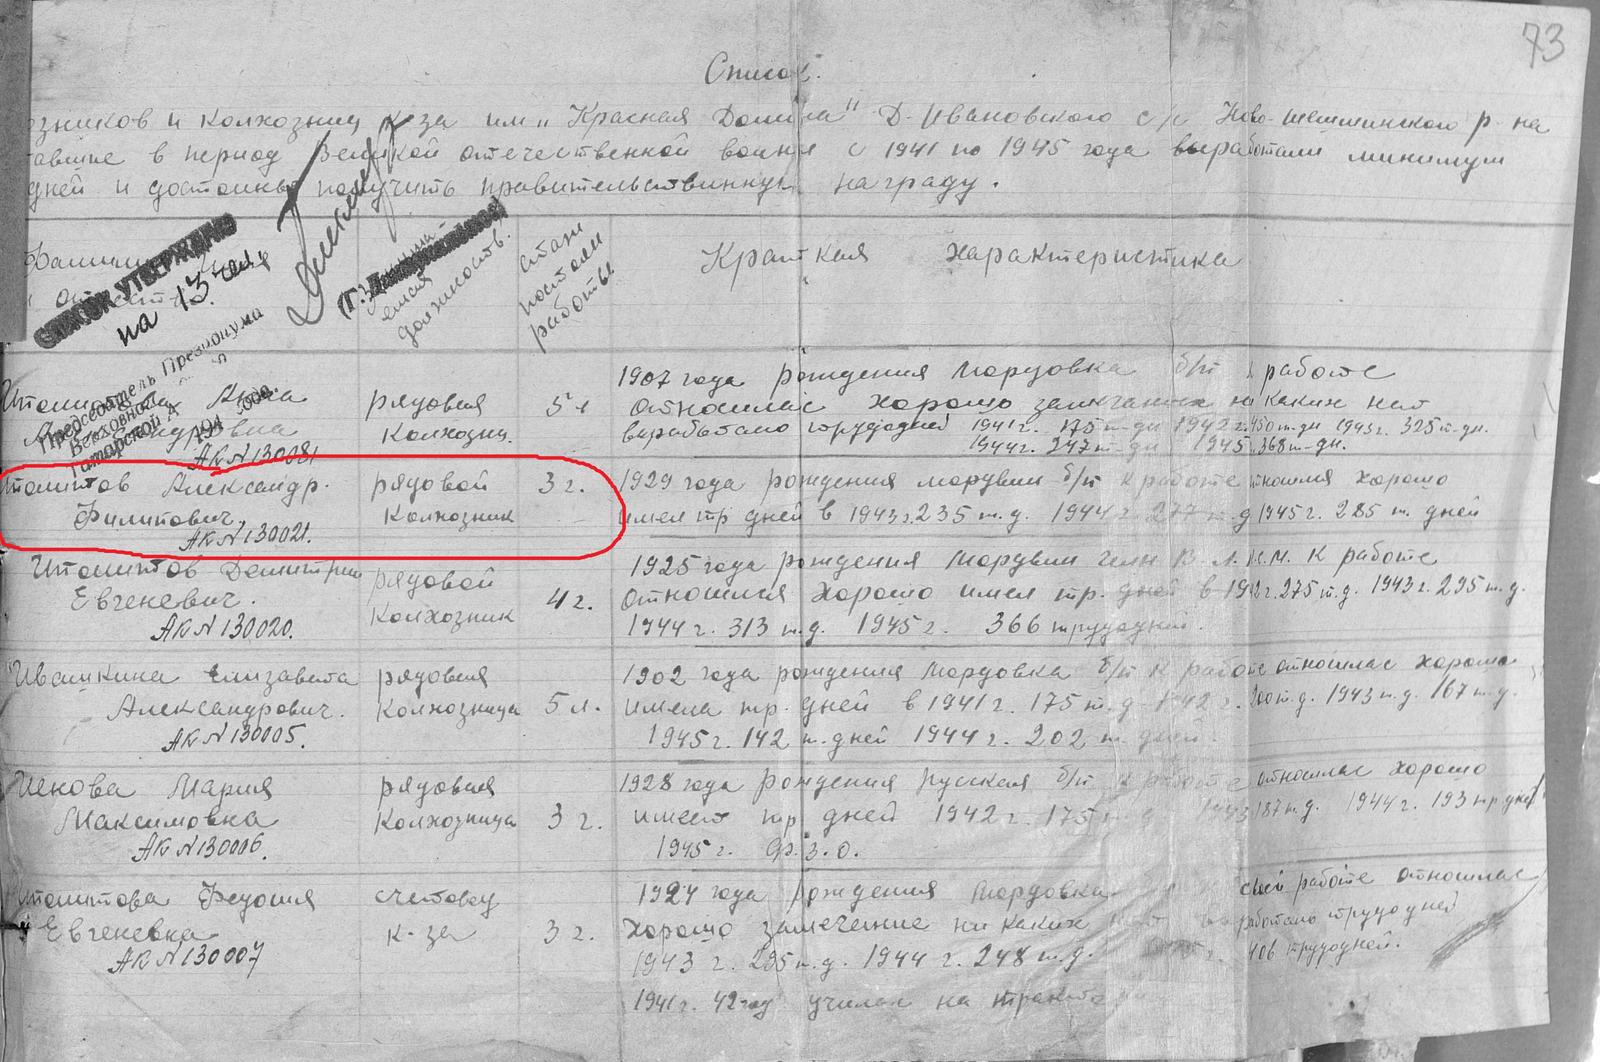 73
Список.
озников и колхозниц к-за им "Красная Долина" Д-Ивановского с/с Ново-шешминского р-на
тавшие в период Великой отечественной войны с 1941 по 1945 года выработали минимум
дней и достойны получить правительственную награду.
Краткая характеристика
стаж
работы
должность.
СПИСОК УТВЕРЖДЕНО
на 13 чел.
Председатель Президиума
Верховного
Татарской
194 года.
Анна
АК N 130081
рядовая
Колхозниц.
5 л
1907 года рождения Мордовка б/п к работе
относилас хорошо замечания ни каких нет
выработано трудодней 1941г. 175 т-дн 1942 г. 150 т-дн 1943г. 325 т-дн.
1944г. 247 т-дн 1945 368 т-дн.
Александр
Филипович.
АК N 130021.
рядовой
Колхозник
3 г.
1929 года рождения мордвин б/п к работе отношлся хорошо
имел тр дней в 1943г. 235 т.д. 1944 г. 277 т.д 1945г. 285 т. дней
Ипоитов Дмитрии
Евгеневич.
АК N 130020.
рядовой
Колхозник
4 г.
1925 года рождения Мордвин член В.Л.К.С.М. К работе
относился хорошо имел тр. дней в 1942г. 275 т.д. 1943г. 295 т.д.
1944 г. 313 т.д. 1945 г. 366 трудодней.
Ивашкина Елизавета
Александрович.
АК N 130005.
рядовая
Колхозница
5 л.
1902 года рождения Мордовка б/п к работе относилас хорошо
имела тр. дней в 1941 г. 175 т.д. 1942 г. 200 т.д. 1943 т.д. 167 т.д.
1945 г. 142 т. дней 1944 г. 202 т. дней.
Мария
Максимовна
АК N 130006.
рядовая
Колхозница
3 г.
1928 года рождения Русская б/п к работе относилас хорошо
имеет тр дней 1942 г. 175 т.д. 1943 187 т.д. 1944 г. 193 тр дней
1945 г. Ф.З.О.
Федосия
Евгеневна
АК N 130007
счетовод
к-за
3 г.
1924 года рождения Мордовка к своей работе относилас
хорошо замечение ни каких нет выработано трудодней
1943 г. 295 т.д. 1944 г. 248 т.д. 406 трудодней.
1941 г. 42 год училас на